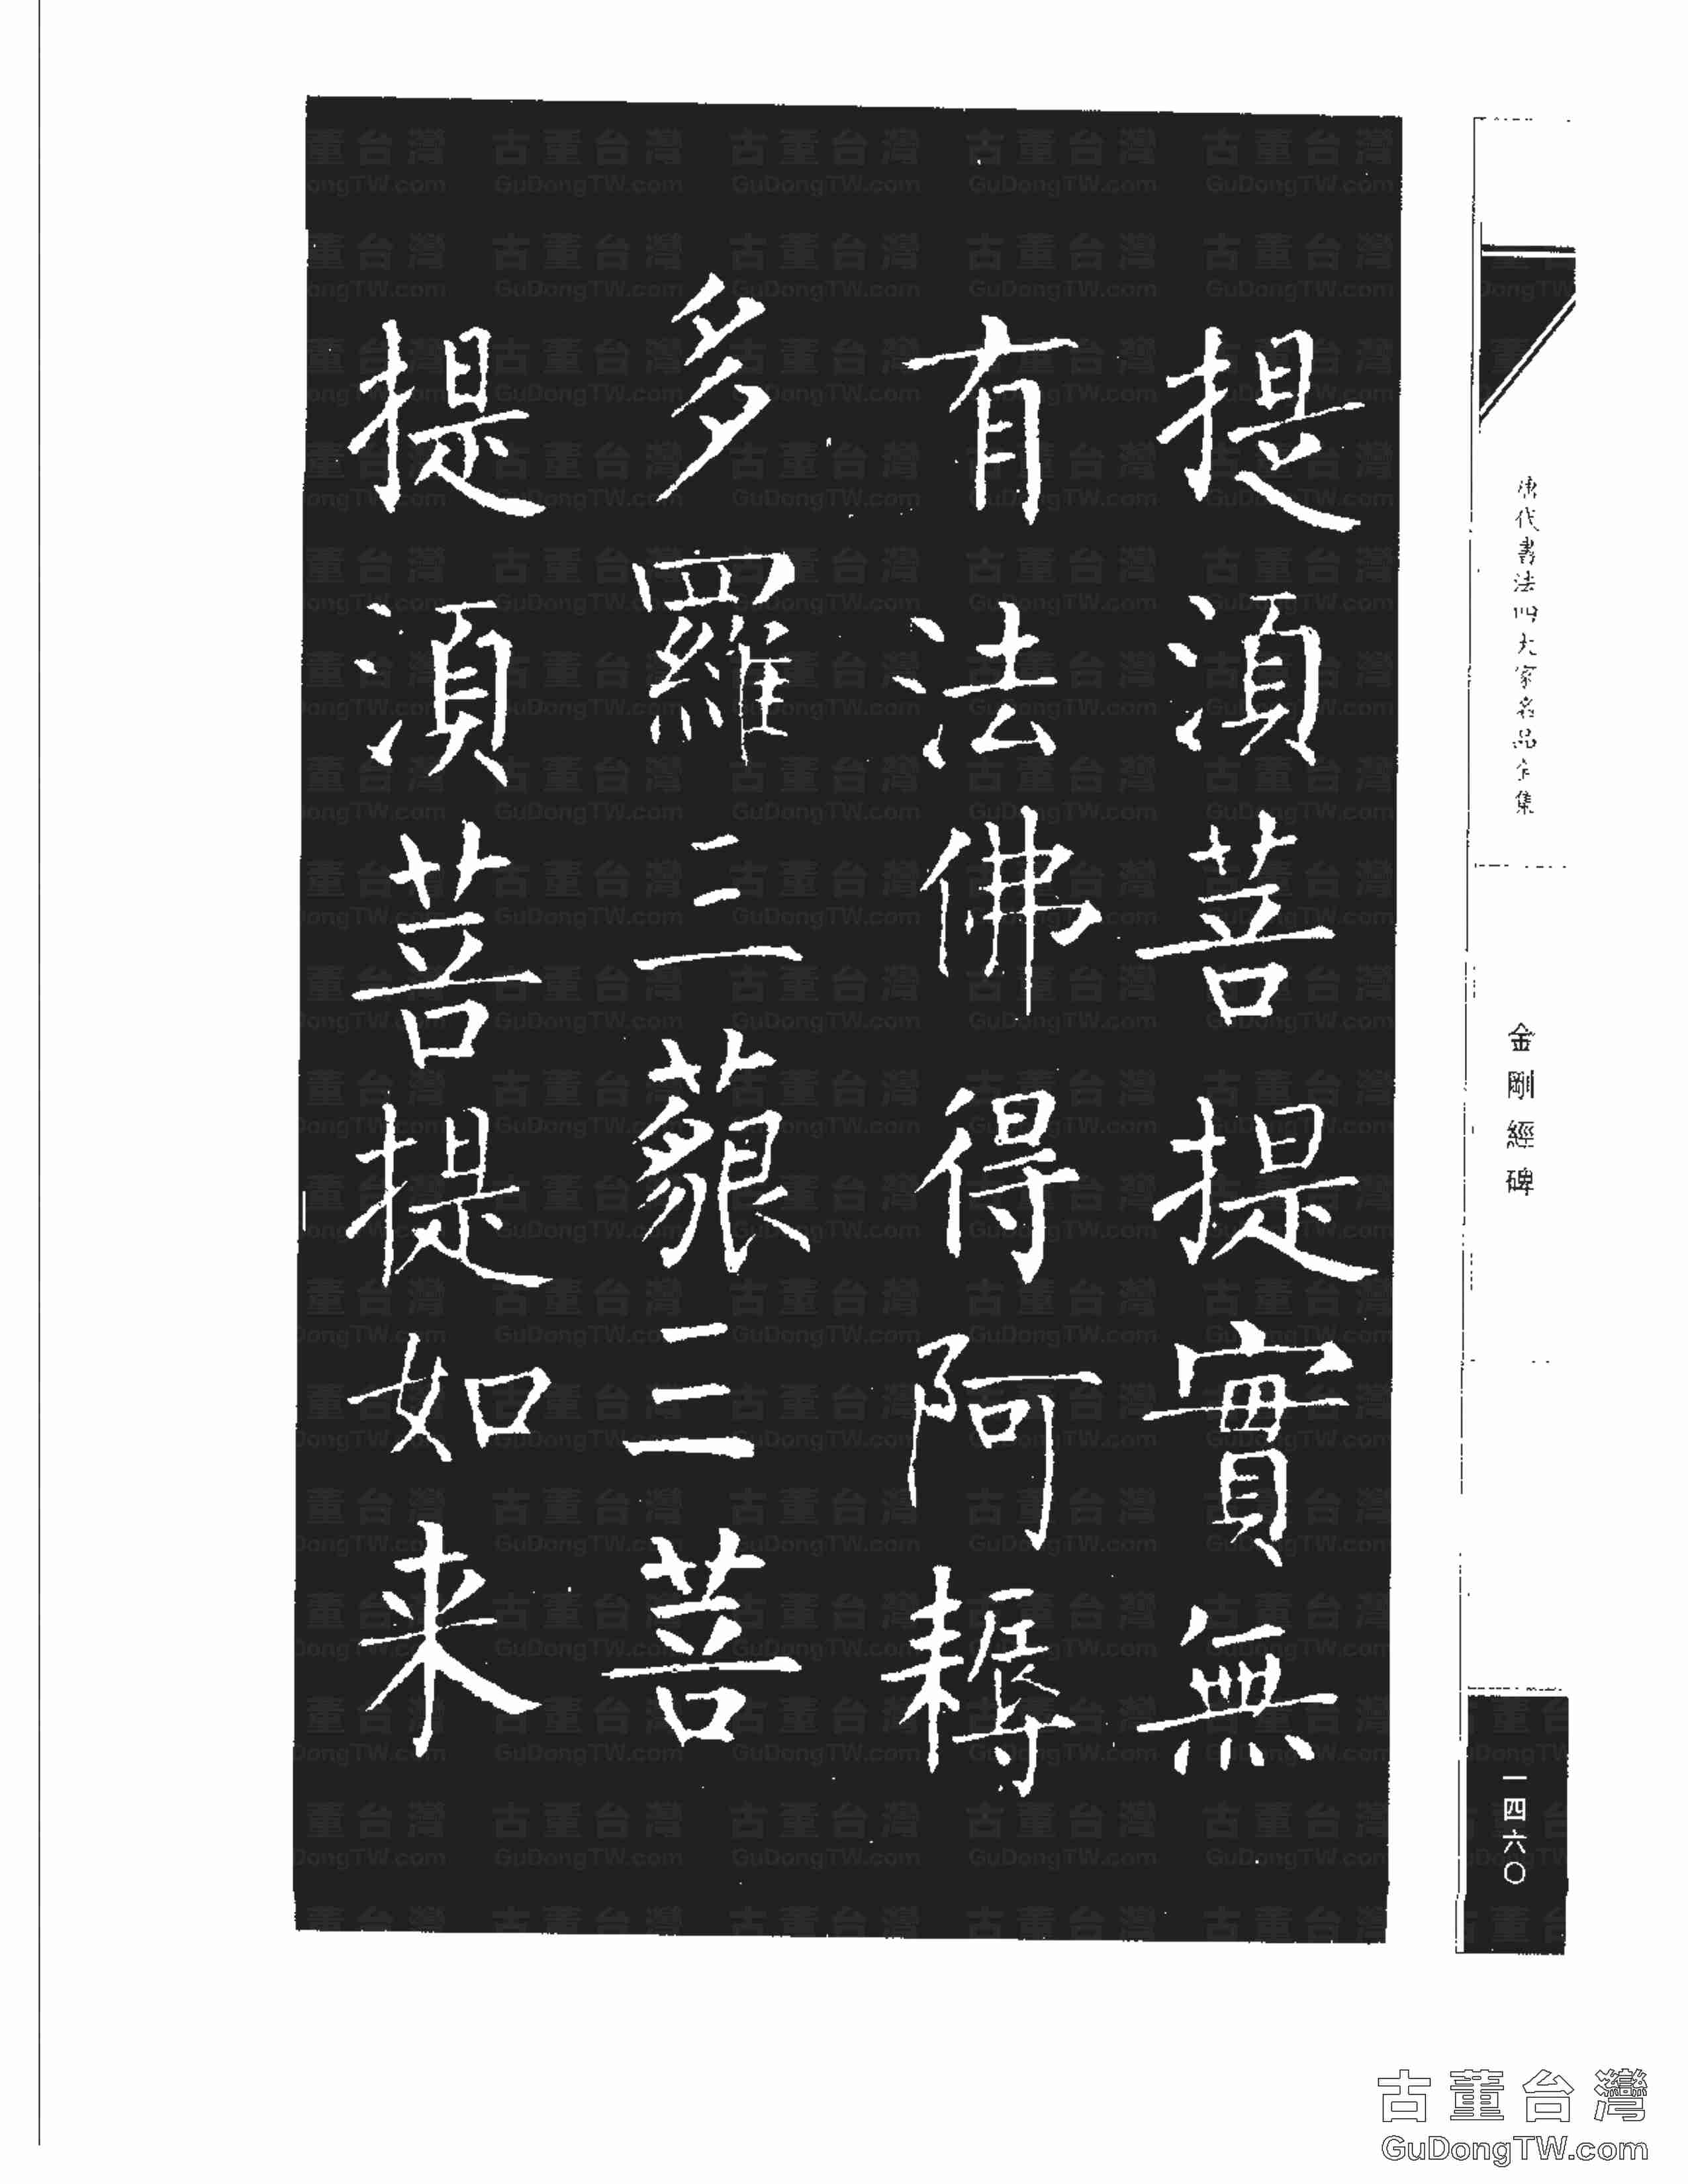 唐代書法四大家名品全集
金剛經碑
一四六〇
提湏菩提實無
有法佛得阿耨
多羅三藐三菩
提湏菩提如来
古董台灣
GuDongTW.com